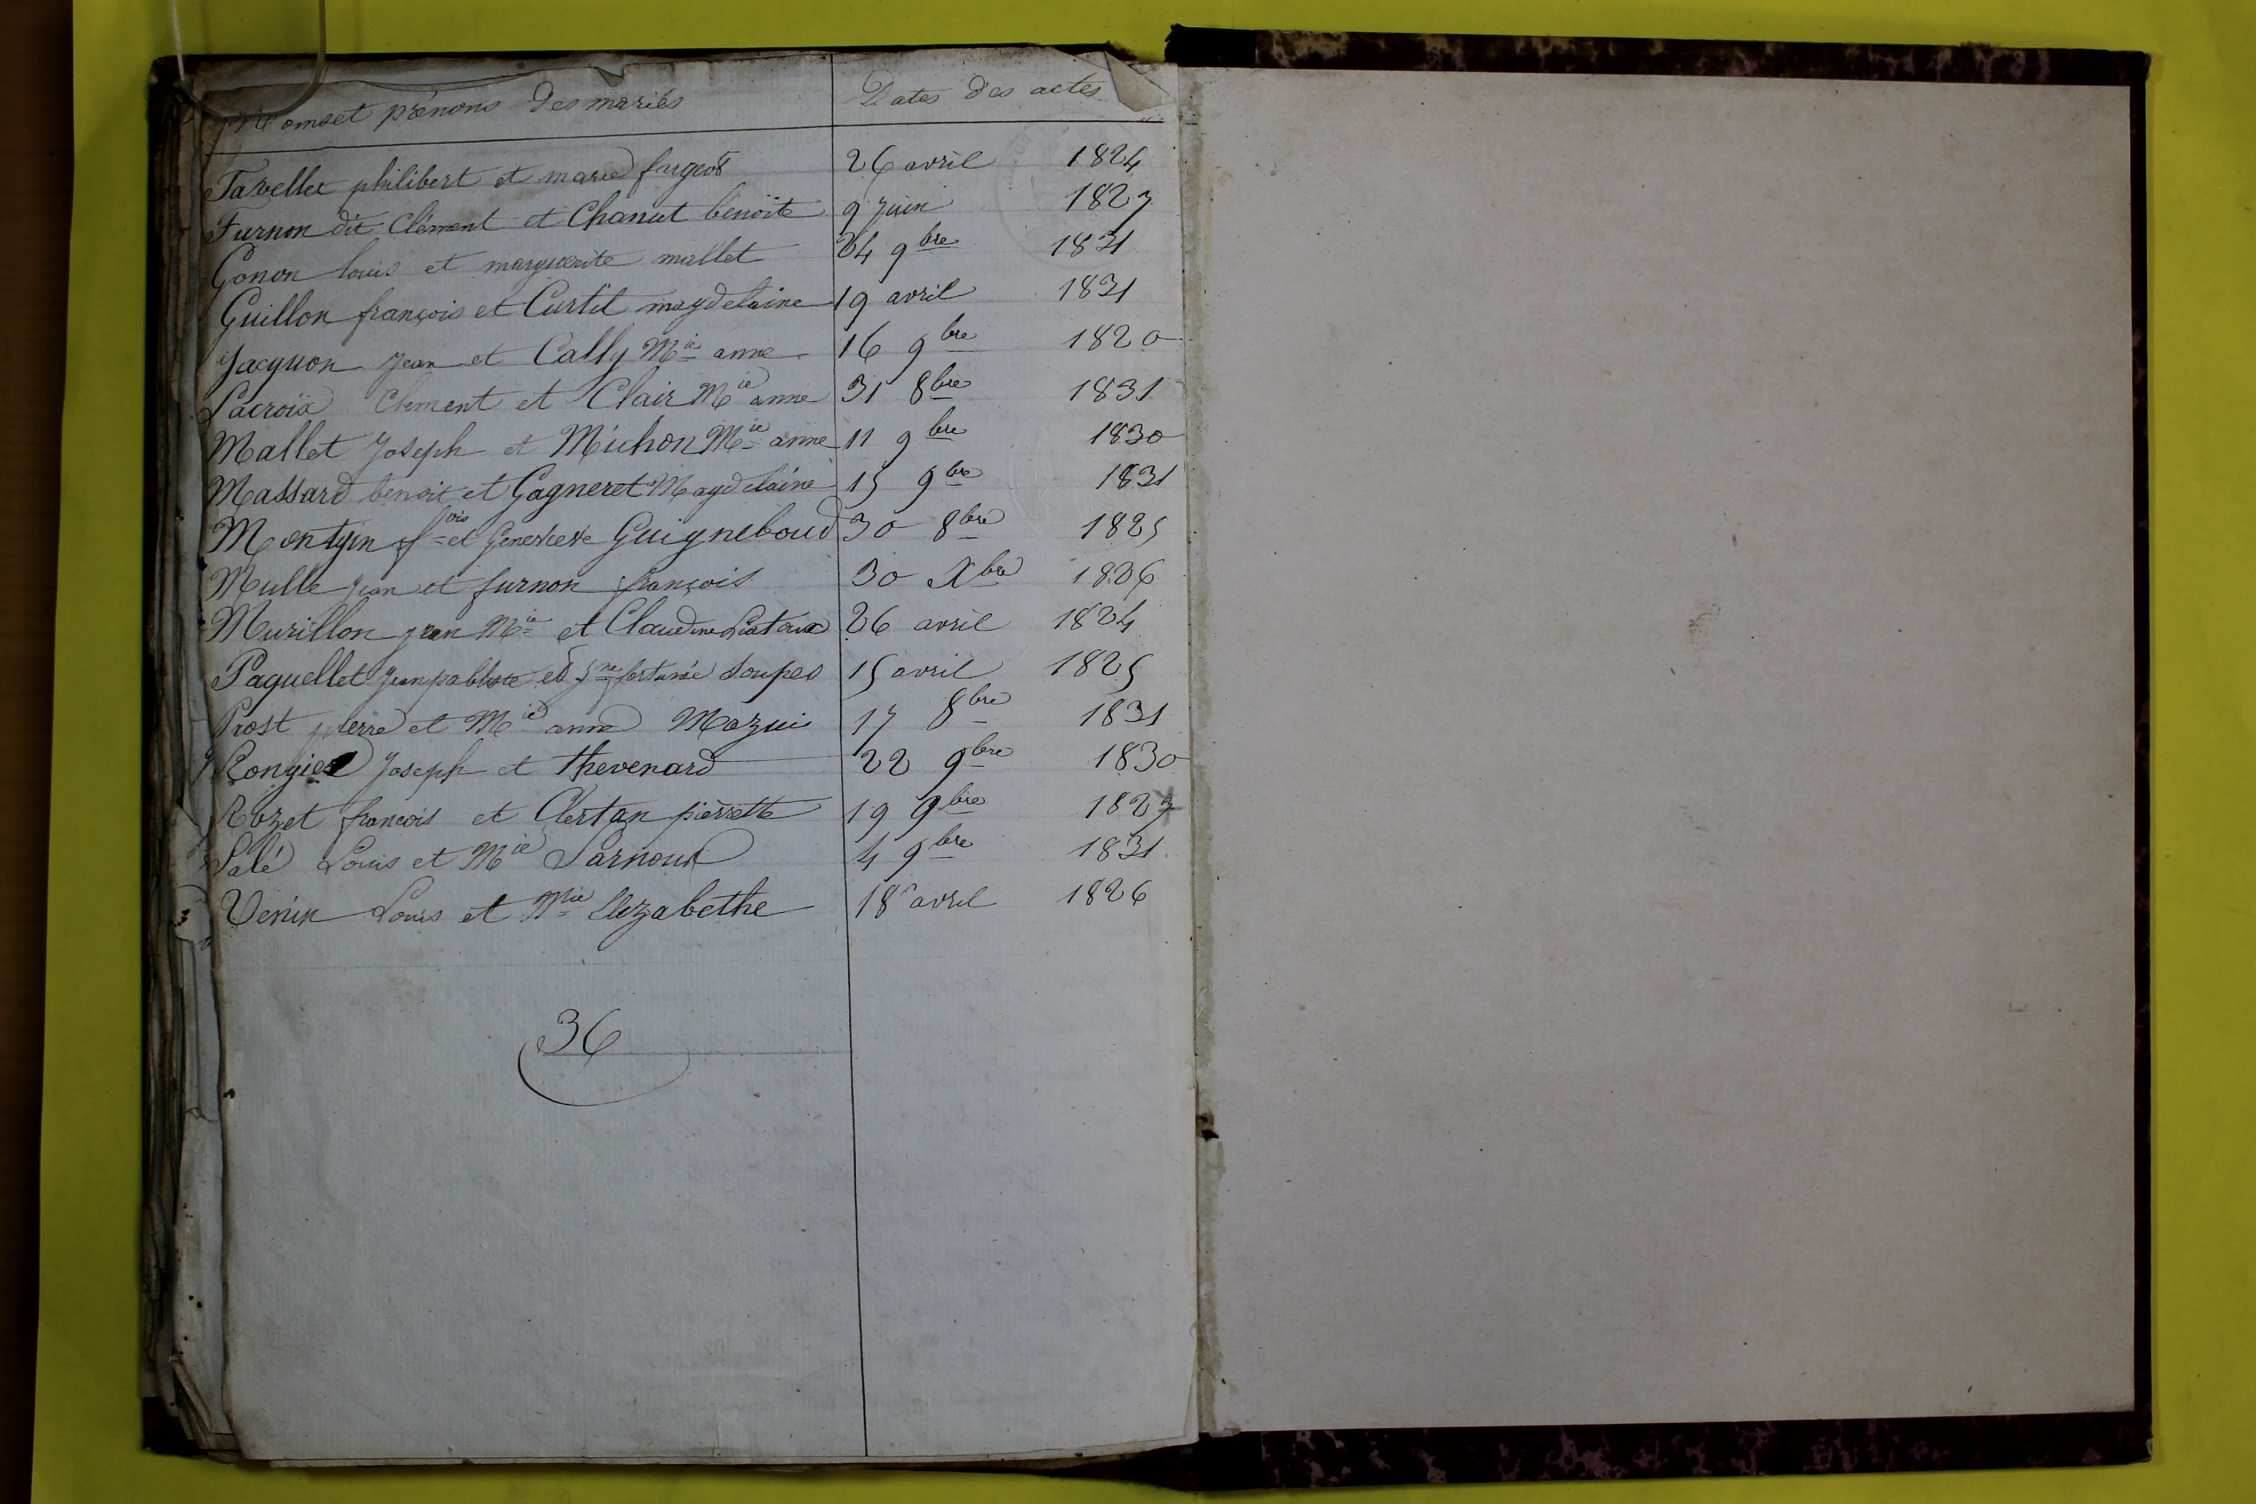 Noms et prénoms des mariés Dates des actes
Favellet philibert et marie fargeot 26 avril 1824
Furnon dit Clément et Chanut benoite 9 Juin 1827
Gonon louis et marguerite mallet 24 9bre 1831
Guillon françois et Curtil magdelaine 19 avril 1831
Jacquon Jean et Cally Mie anne 16 9bre 1820
Lacroix Clément et Clair Mie anne 31 8bre 1831
Mallet Joseph et Michon Mie anne 11 9bre 1830
Massard benoit et Gagneret Magdelaine 15 9bre 1831
Montgin fois et Genevieve Guigneboud 30 8bre 1825
Mulle Jean et furnon françois 30 Xbre 1826
Murillon jean Mie et Claudine 26 avril 1824
Paquellet Jean et fortunée Soupes 15 avril 1825
Prost pierre et Mie anne Mazui 17 8bre 1831
Rongier Joseph et thevenard 22 9bre 1830
Rozet françois et Clertan pierrette 19 9bre 1827
Salé Louis et Mie Sarnoux 4 9bre 1831
Venin Louis et Mie Elizabethe 18 avril 1826
36